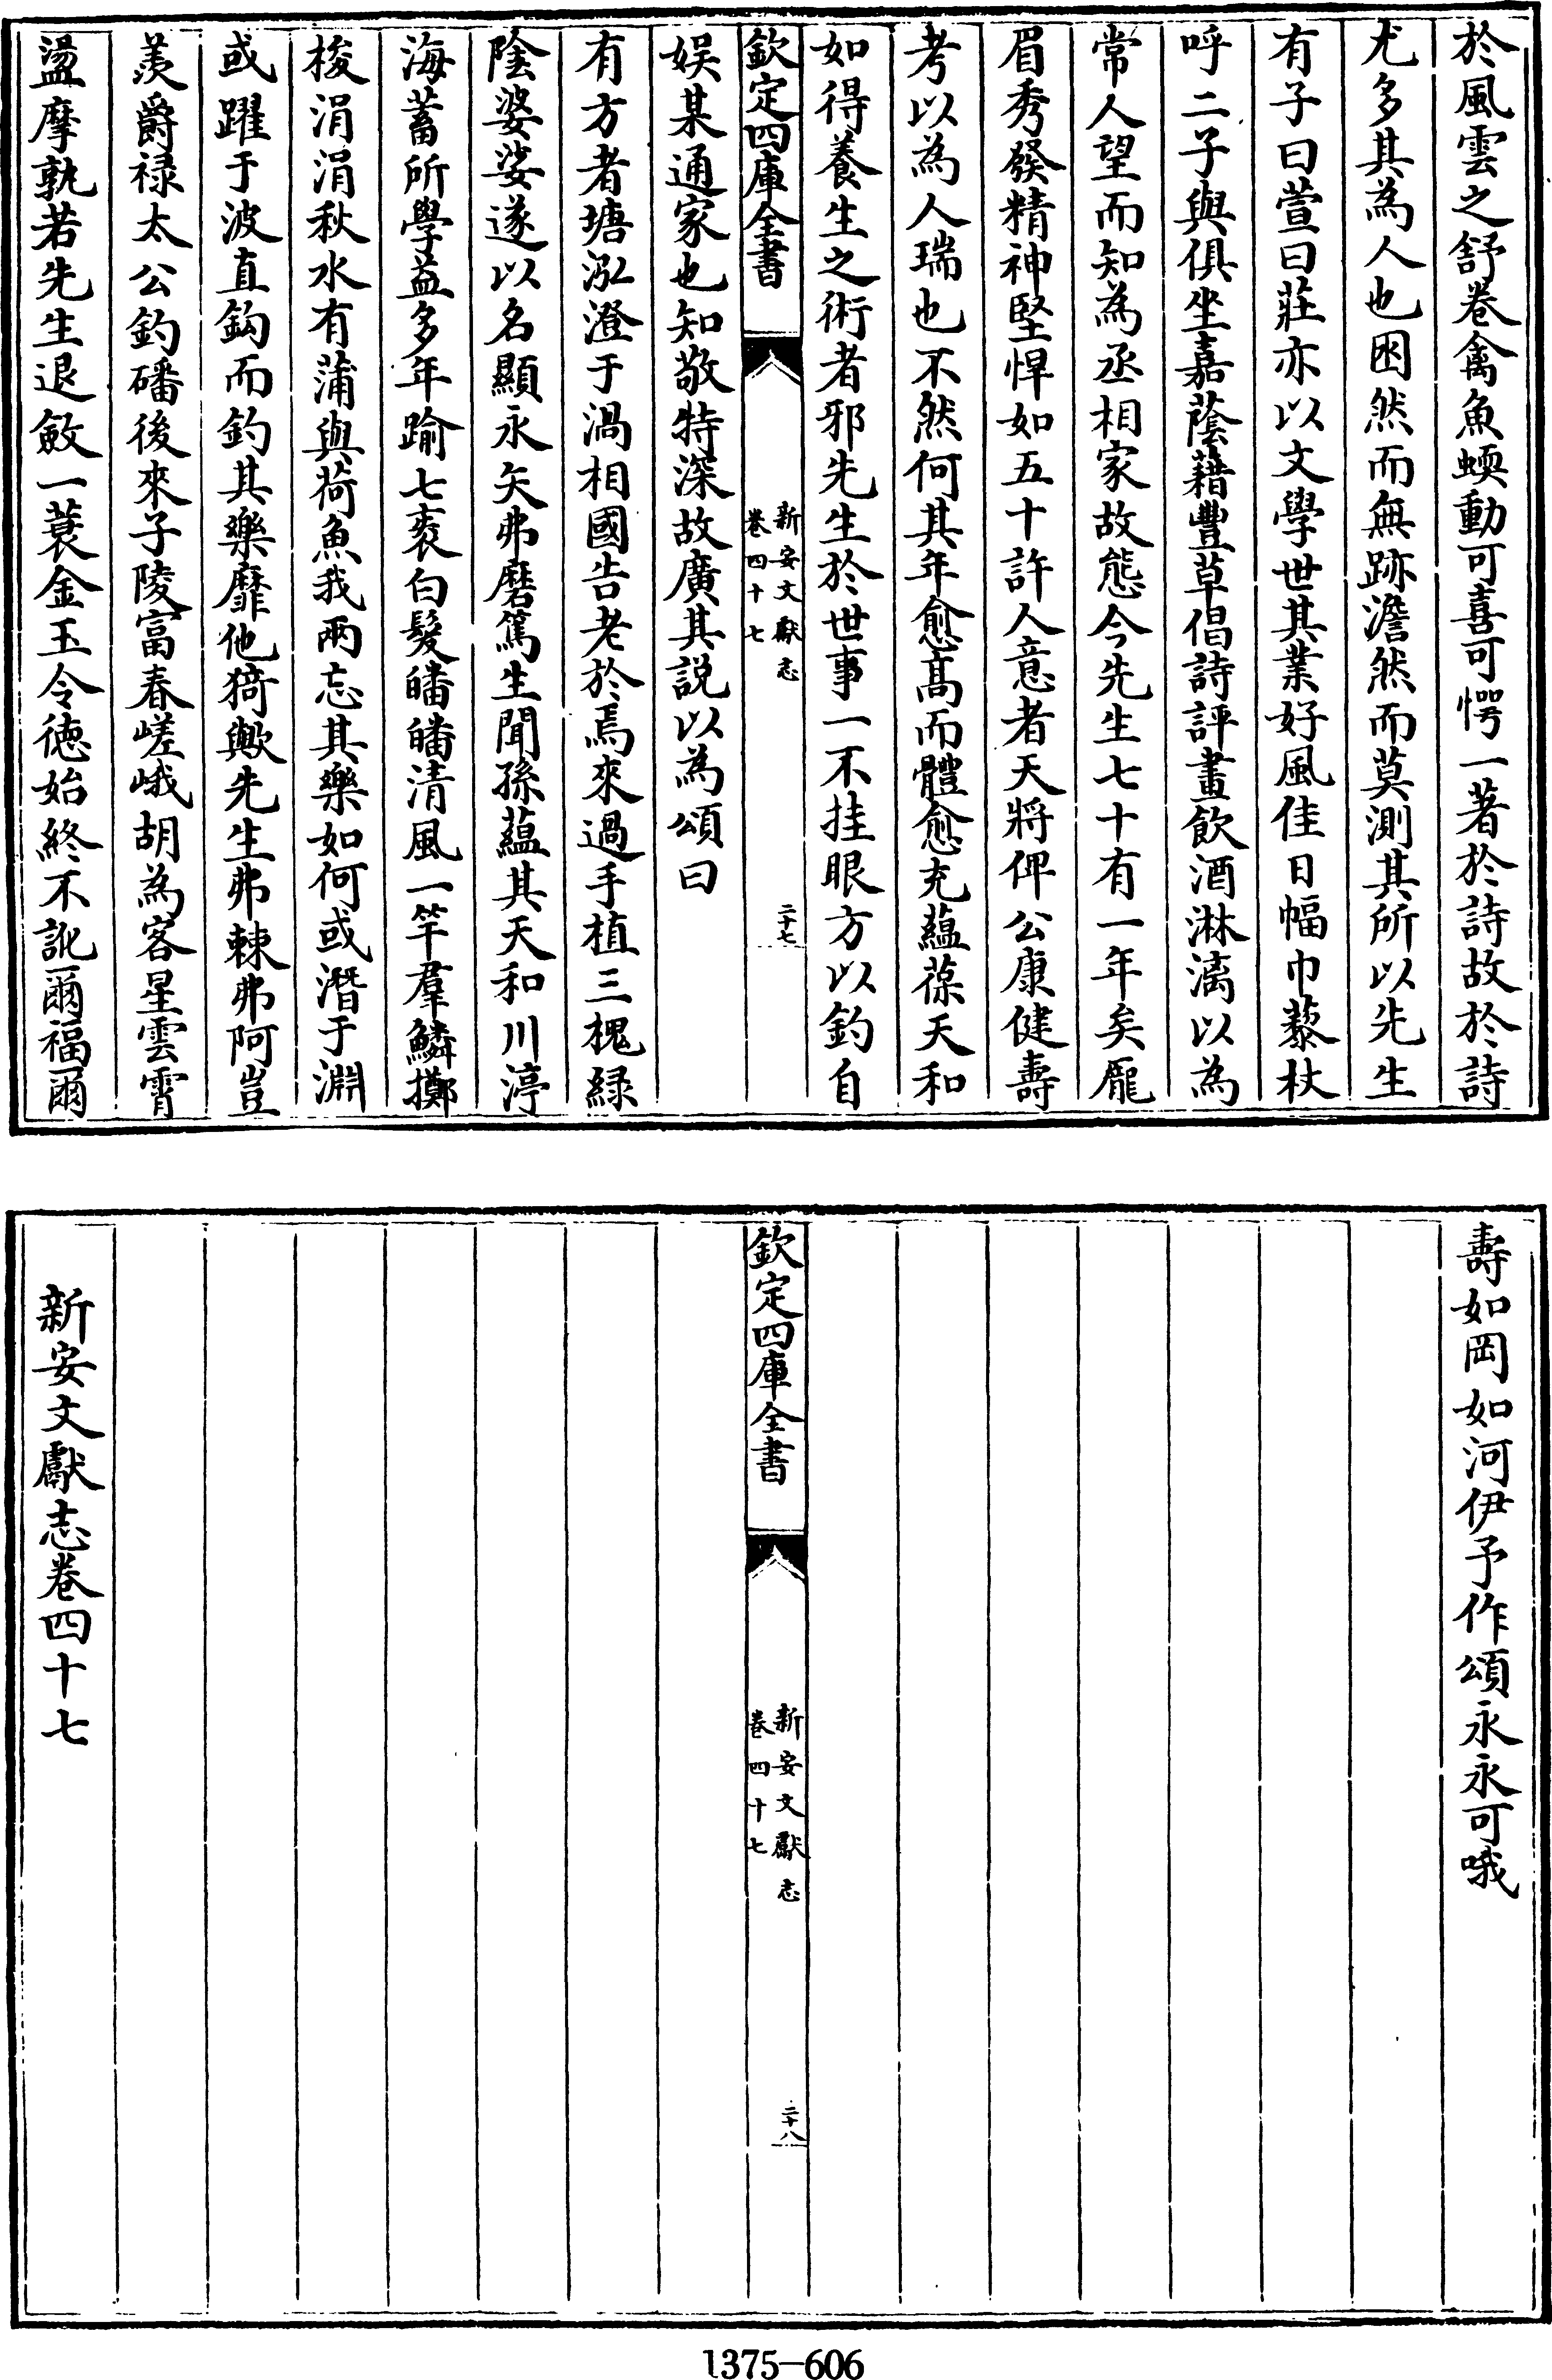 於風雲之舒卷禽魚蝡動可喜可愕一著於詩故於詩
尤多其為人也困然而無跡澹然而莫測其所以先生
有子曰萱曰莊亦以文學世其業好風佳日幅巾藜杖
呼二子與俱坐嘉蔭藉豐草倡詩評畫飲酒淋漓以為
常人望而知為丞相家故態今先生七十有一年矣龐
眉秀發精神堅悍如五十許人意者天將俾公康健壽
考以為人瑞也不然何其年愈髙而體愈充蘊葆天和
如得養生之術者邪先生於世事一不挂眼方以釣自
欽定四庫全書
新安文獻志
卷四十七
二十七
娱某通家也知敬特深故廣其説以為頌曰
有方者塘泓澄于渦相國告老於焉來過手植三槐緑
隂婆娑遂以名顯永矢弗磨篤生聞孫藴其天和川渟
海蓄所學益多年踰七袠白髮皤皤清風一竿羣鱗擲
梭涓涓秋水有蒲與荷魚我兩忘其樂如何或潛于淵
或躍于波直鈎而釣其樂靡他猗歟先生弗棘弗阿豈
羨爵禄太公釣磻後來子陵富春嵯峨胡為客星雲霄
盪摩孰若先生退斂一蓑金玉令徳始終不訛爾福爾
壽如岡如河伊予作頌永永可哦
欽定四庫全書
新安文獻志
卷四十七
二十八
新安文獻志卷四十七
1375-606